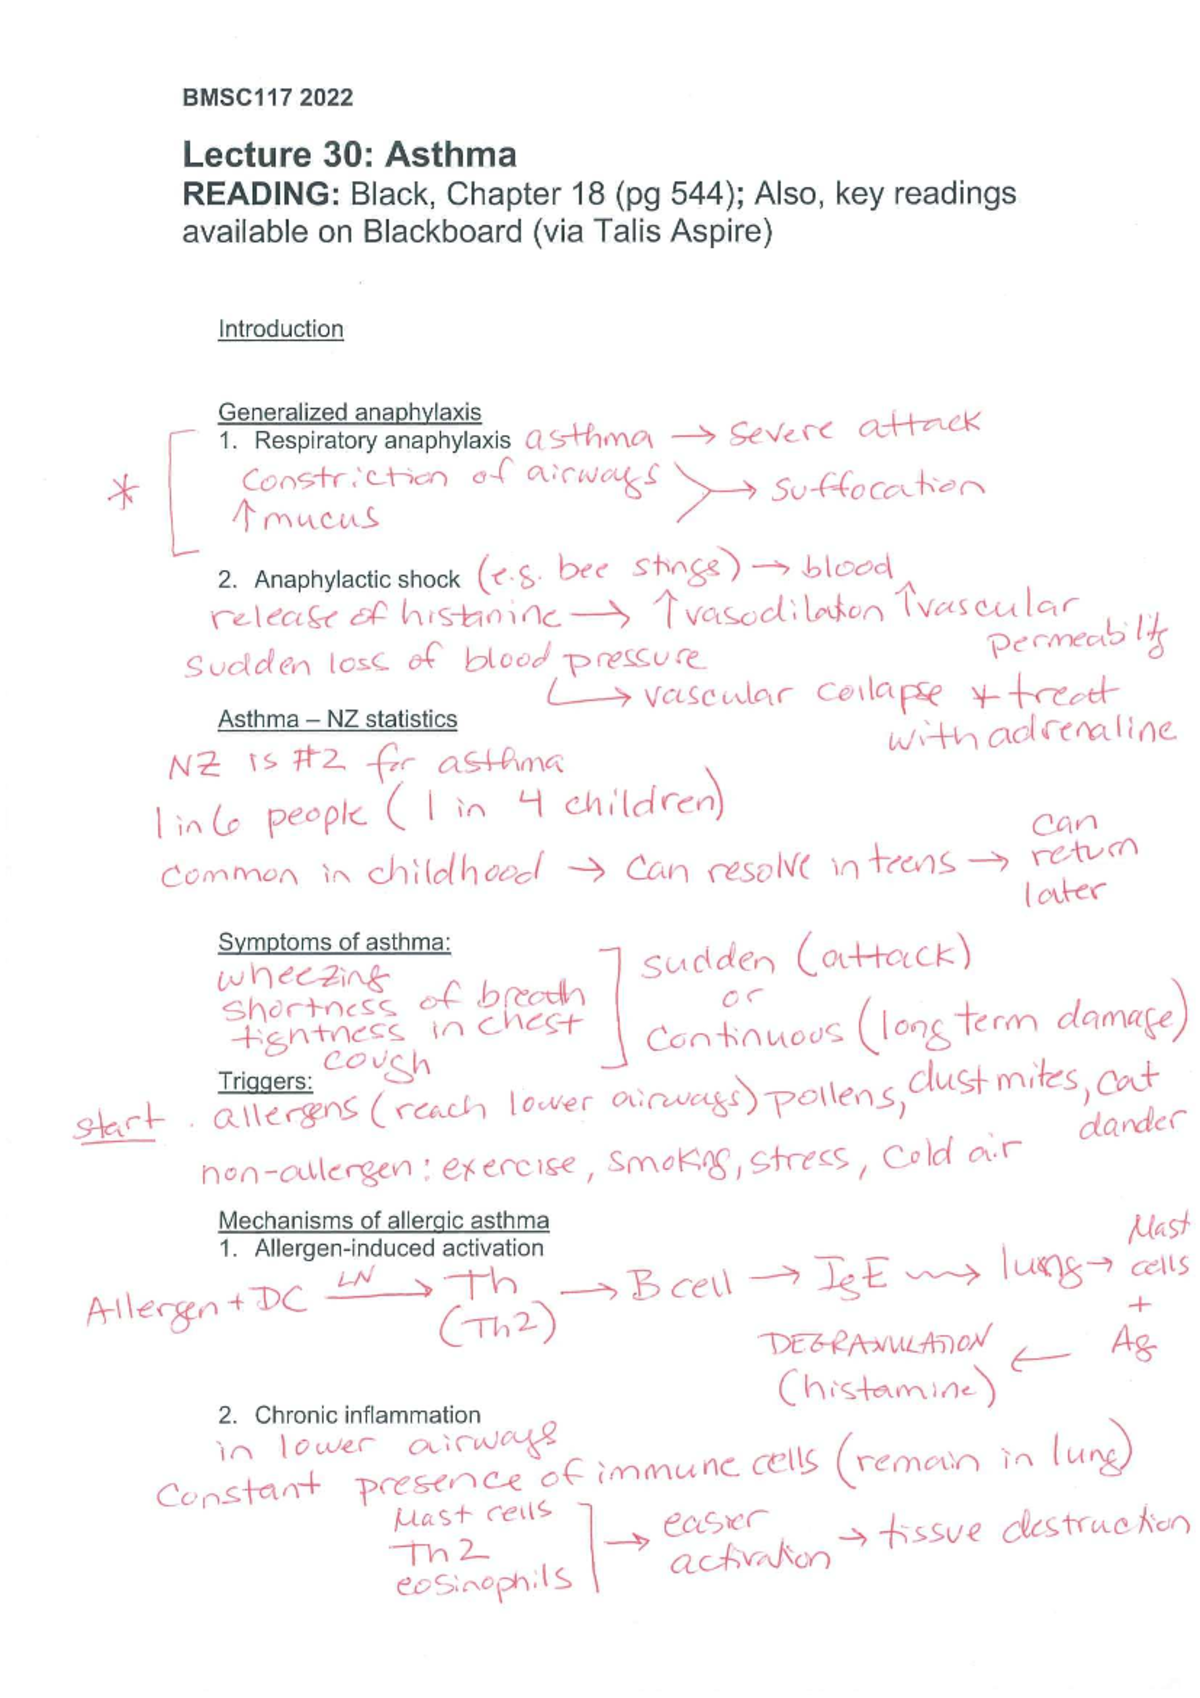 BMSC117 2022
Lecture 30: Asthma
READING: Black, Chapter 18 (pg 544); Also, key readings
available on Blackboard (via Talis Aspire)
Introduction
Generalized anaphylaxis
1. Respiratory anaphylaxis asthma → severe attack
* constriction of airways → suffocation
↑ mucus
2. Anaphylactic shock (e.g. bee stings) → blood
release of histamine → ↑vasodilation ↑vascular
permeability
sudden loss of blood pressure
↳ vascular collapse * treat
with adrenaline
Asthma – NZ statistics
NZ is #2 for asthma
1 in 6 people (1 in 4 children)
common in childhood → can resolve in teens → can
return
later
Symptoms of asthma:
wheezing
shortness of breath
tightness in chest
cough
sudden (attack)
or
continuous (long term damage)
Triggers:
start . allergens (reach lower airways) pollens, dust mites, cat
dander
non-allergen: exercise, smoking, stress, cold air
Mechanisms of allergic asthma
1. Allergen-induced activation
Allergen + DC LN → Th → B cell → IgE → lung → Mast
cells
+
Ag
(Th2)
DEGRANULATION ←
(histamine)
2. Chronic inflammation
in lower airways
constant presence of immune cells (remain in lung)
Mast cells
Th2
eosinophils
→ easier
activation → tissue destruction